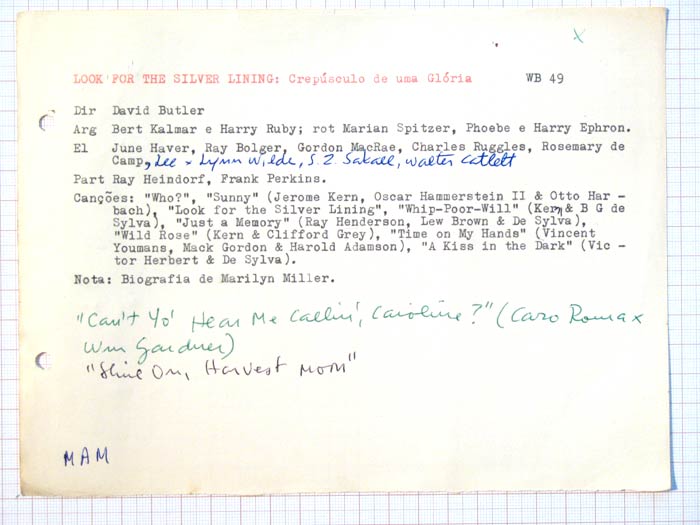 x
LOOK FOR THE SILVER LINING: Crepúsculo de uma Glória WB 49
Dir David Butler
Arg Bert Kalmar e Harry Ruby; rot Marian Spitzer, Phoebe e Harry Ephron.
El June Haver, Ray Bolger, Gordon MacRae, Charles Ruggles, Rosemary de
Camp, Lee x Lynn Wilde, S. Z. Sakall, Walter Catlett
Part Ray Heindorf, Frank Perkins.
Canções: "Who?", "Sunny" (Jerome Kern, Oscar Hammerstein II & Otto Har –
bach), "Look for the Silver Lining", "Whip-Poor-Will" (Kern & B G de
Sylva), "Just a Memory" (Ray Henderson, Lew Brown & De Sylva),
"Wild Rose" (Kern & Clifford Grey), "Time on My Hands" (Vincent
Youmans, Mack Gordon & Harold Adamson), "A Kiss in the Dark" (Vic –
tor Herbert & De Sylva).
Nota: Biografia de Marilyn Miller.
"Can't Yo' Hear Me Callin', Caroline?" (Caro Roma x
Wm Gardner)
"Shine On, Harvest Moon"
MAM